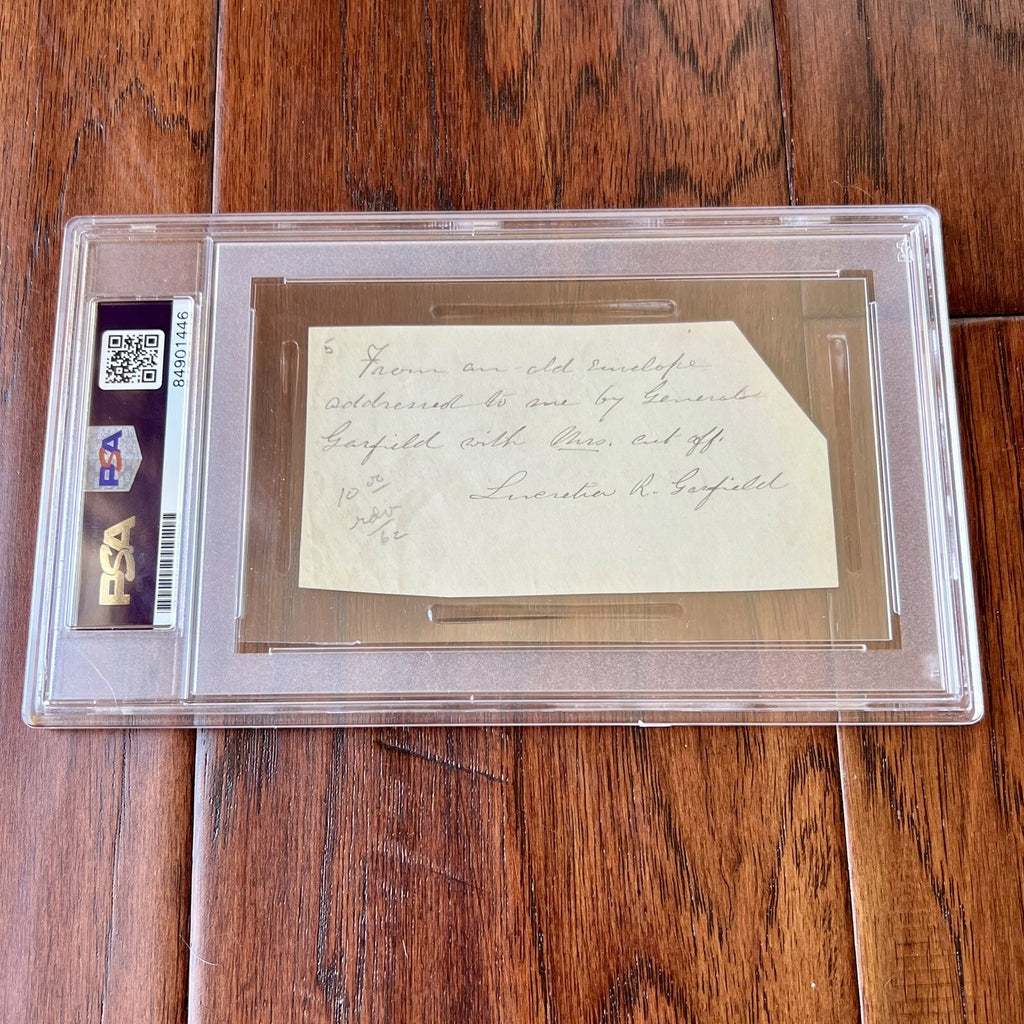 5
From an old envelope
addressed to me by General
Garfield with Mrs. cut off.
Lucretia R. Garfield
10 00
/62
84901446
PSA
PSA